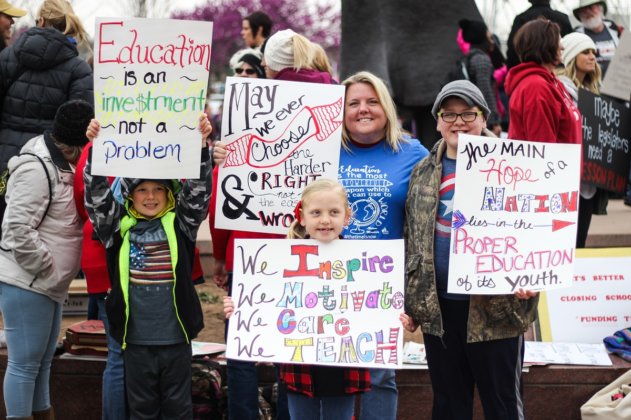 Education
is an
investment
not a
problem
May
we ever
Choose
the
Harder
RIGHT
& 
Education
is the most
weapon which
can use to
We Inspire
We Motivate
We Care
We TEACH
The MAIN
Hope of a
NATION
lies in the
PROPER
EDUCATION
of its youth.
maybe
the legislators
need a
LESSON PLAN
BETTER
CLOSING SCHOO
"FUNDING T